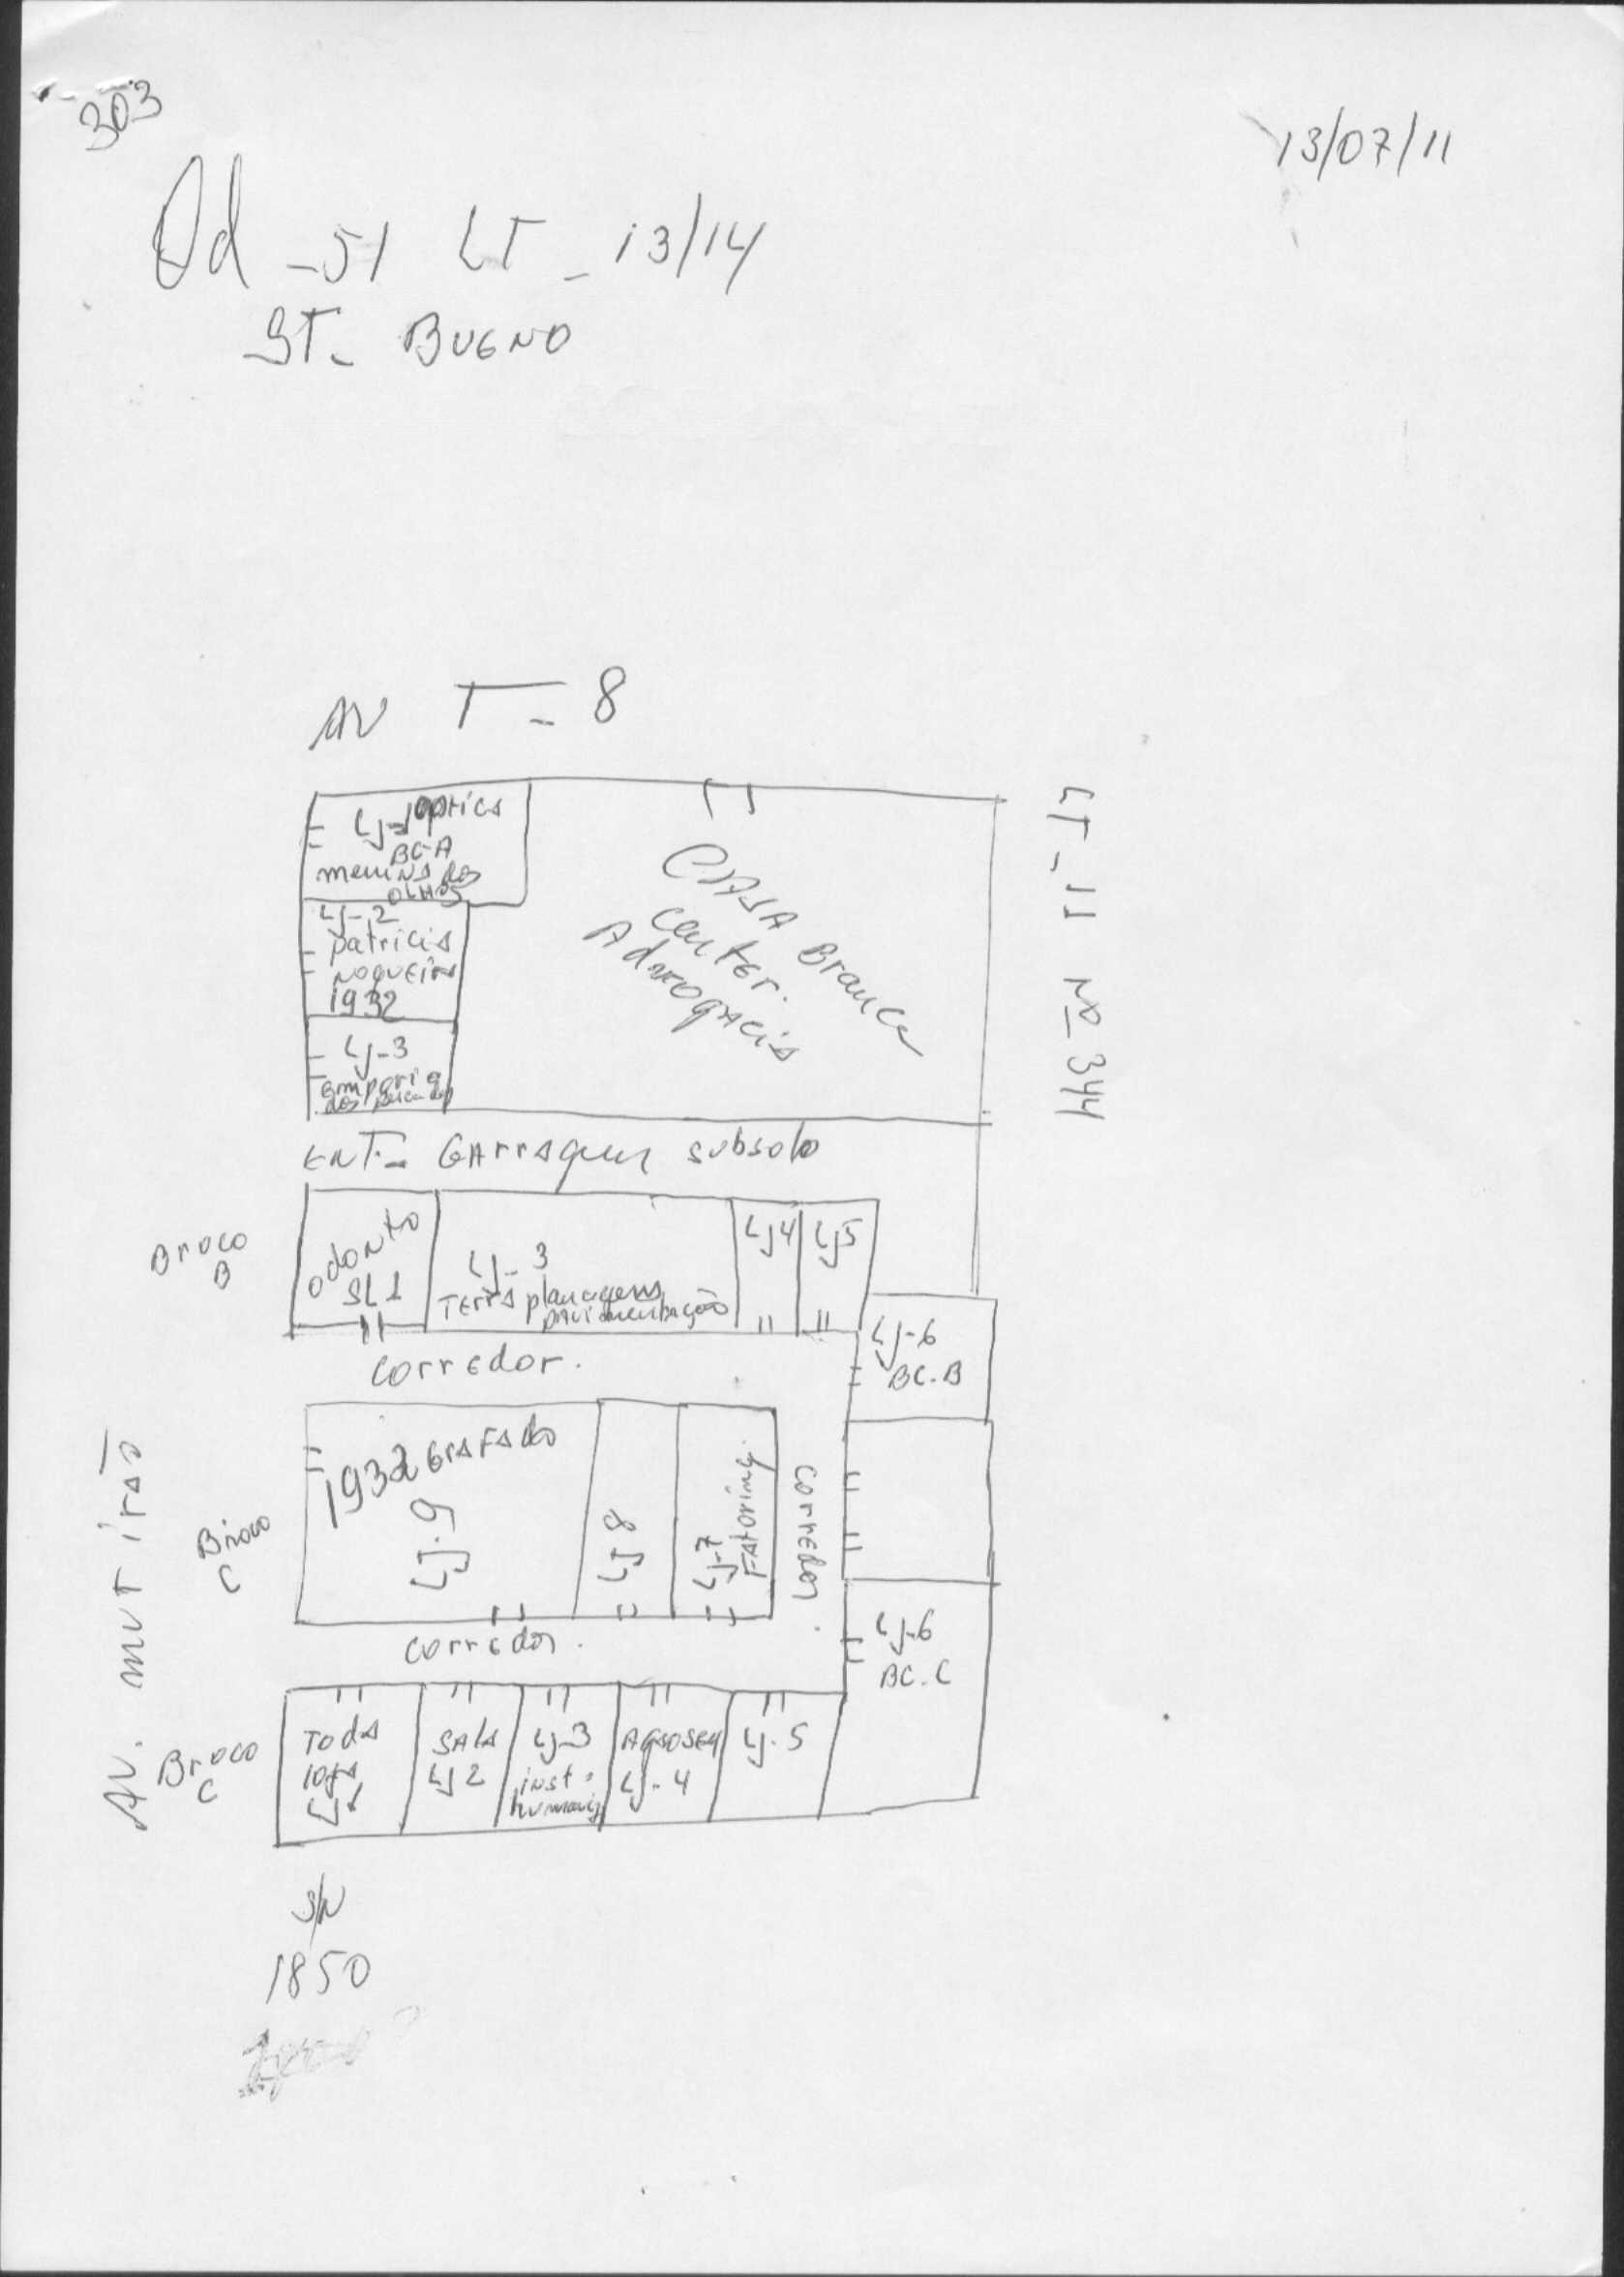 303
13/07/11
Qd - 51 LT - 13/14
ST- BUENO
AV T-8
Lj-1 optica
BC-A
menina dos
olhos
Lj-2
patricia
Nogueira
1932
Lj-3
emporio
dos
Casa Branca
center.
LT-11 No 344
ENT- Garragem subsolo
Broco
B
odonto
SL1
Lj-3
Terra planagens
pavimentação
Lj4
Lj5
Lj-6
BC.B
corredor.
Broco
C
1932 Grafado
Lj.9
Lj 8
Lj-7
Fatoring.
corredor.
Lj-6
BC.C
corredor.
AV. mutirão
Broco
C
Toda
loja
Lj1
Sala
Lj2
Lj-3
inst.
Lj-4
Lj-5
S/N
1850